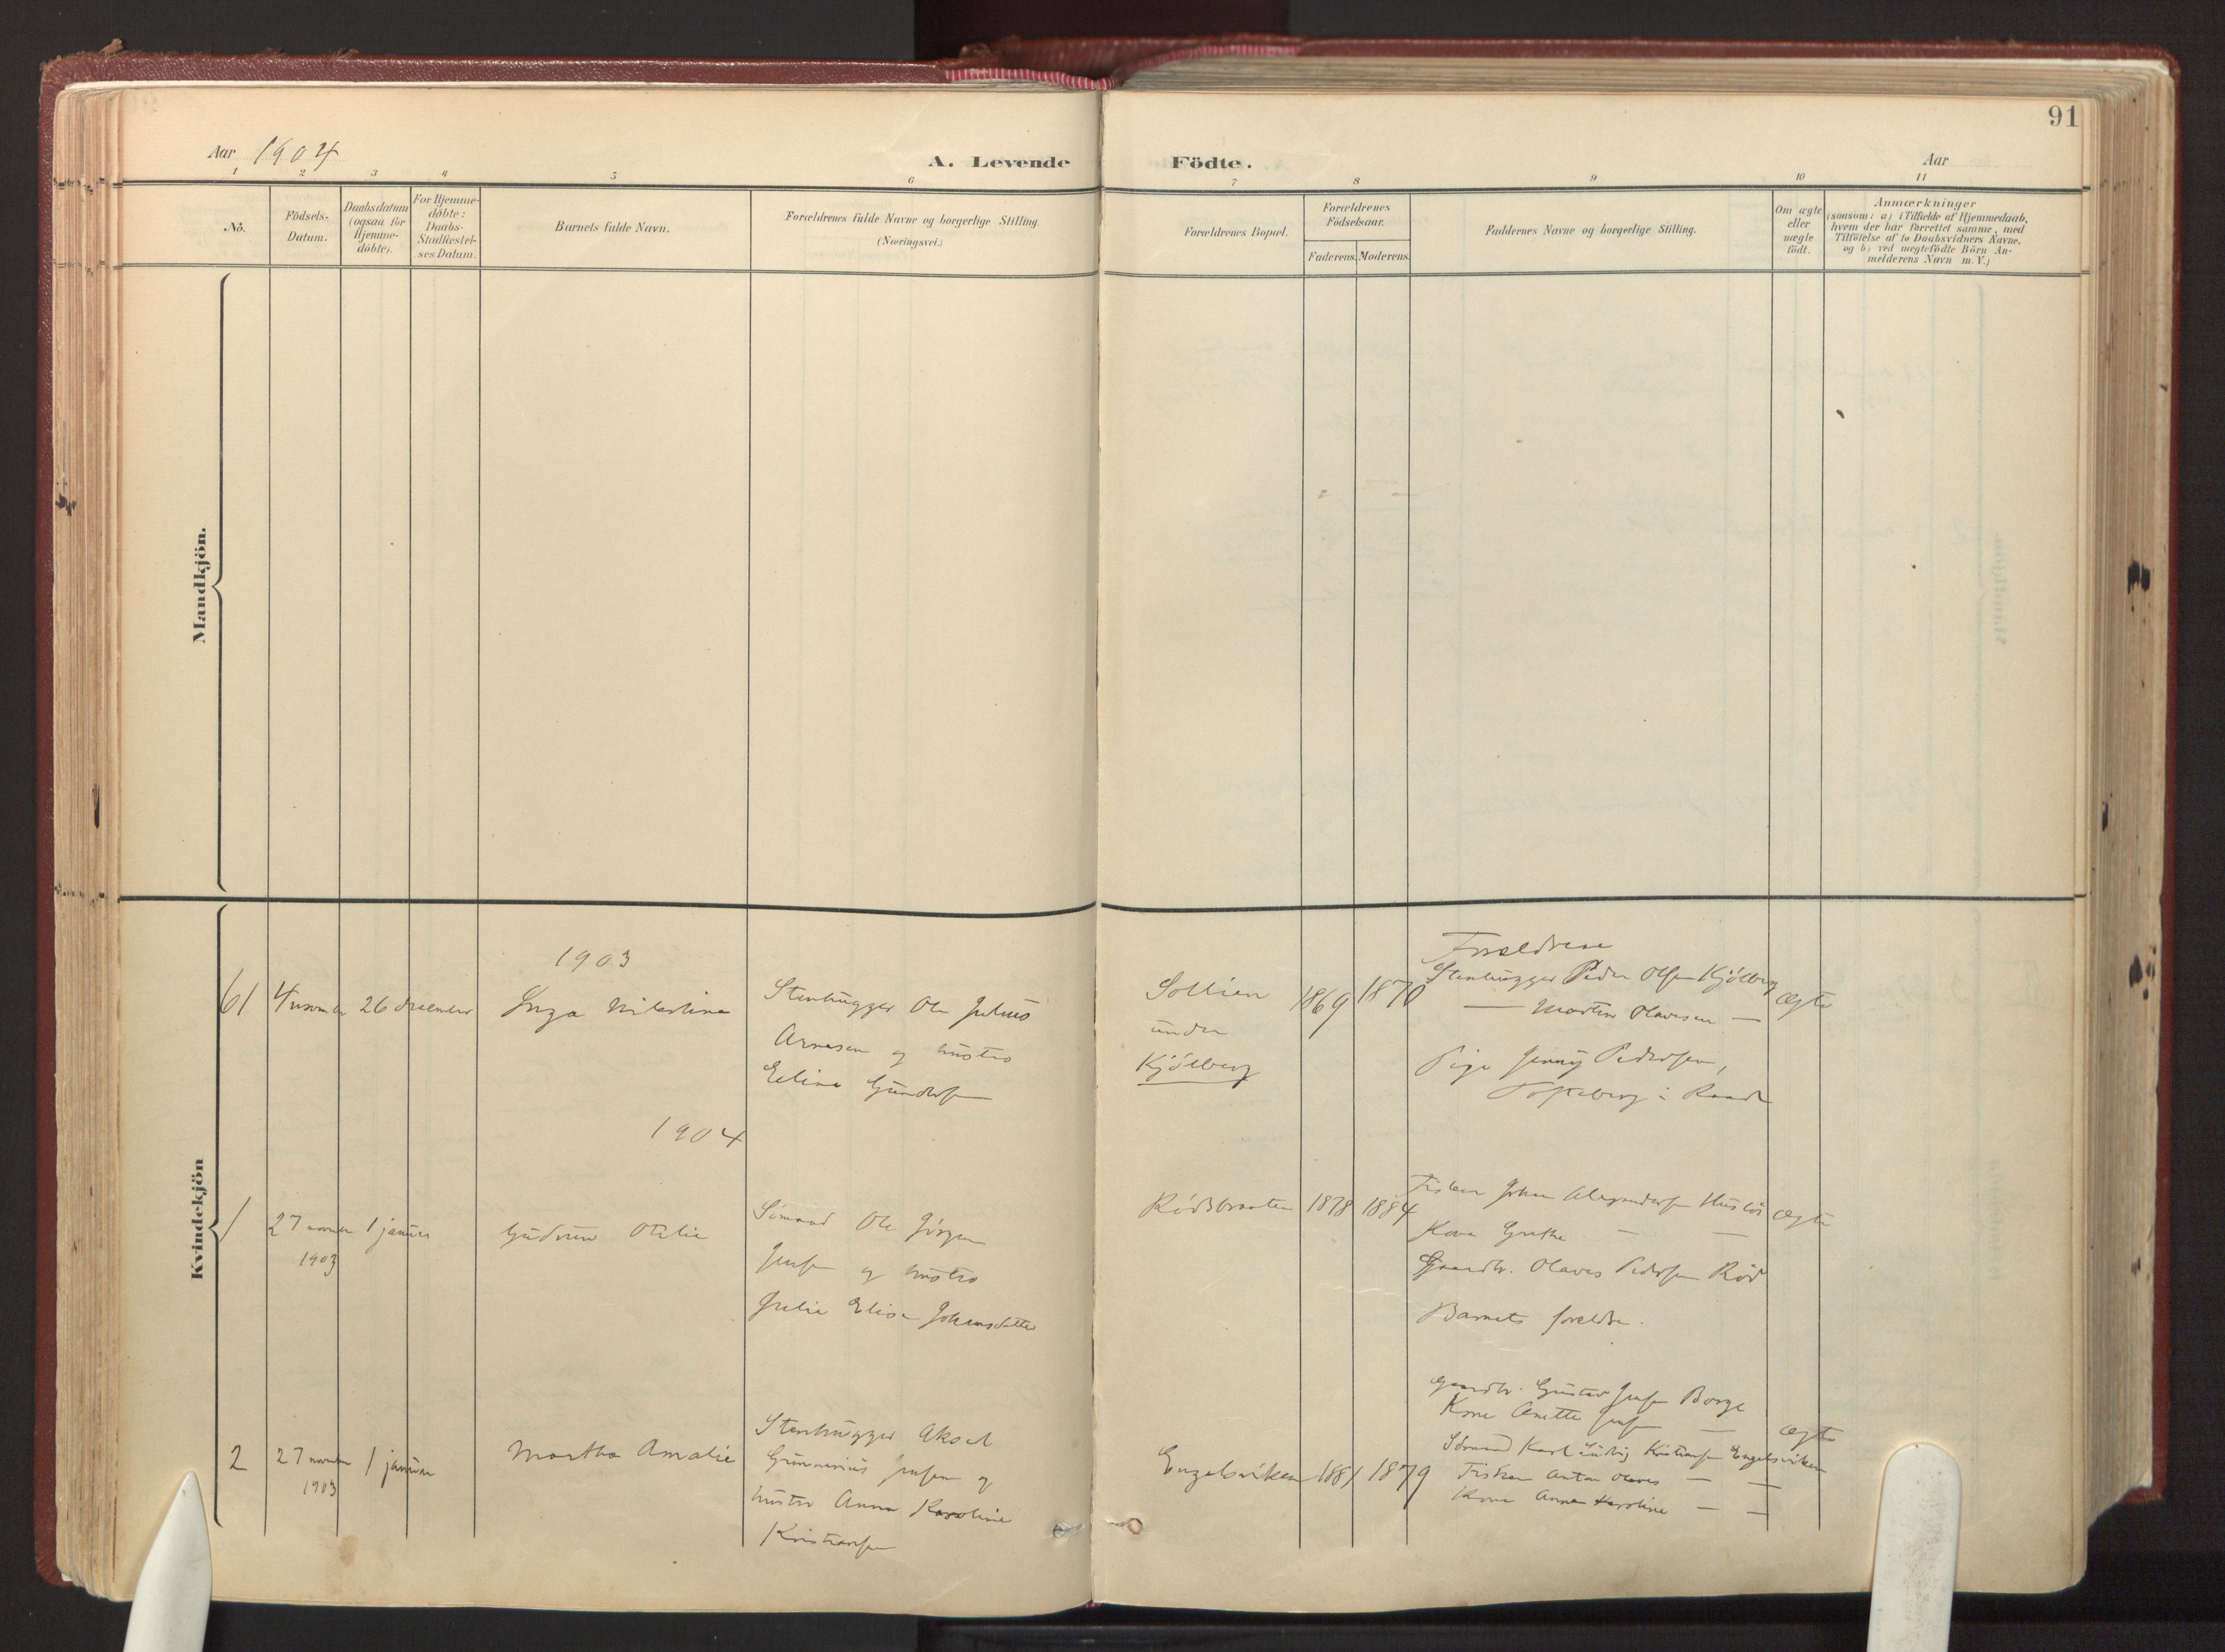 91
Aar 1904
A. Levende Födte.
Aar
1 2 3 4 5 6 7 8 9 10 11
Nö.
Födsels-Datum.
Daabsdatum (ogsaa for Hjemme-döbte).
For Hjemme-döbte: Daabs-Stadfæstel-ses Datum.
Barnets fulde Navn.
Forældrenes fulde Navne og borgerlige Stilling.
(Næringsvei.)
Forældrenes Bopæl.
Forældrenes Födselsaar.
Faderens. Moderens.
Faddernes Navne og borgerlige Stilling.
Om ægte eller uægte födt.
Anmærkninger
(saasom: a) i Tilfælde af Hjemmedaab,
hvem der har forrettet samme, med
Tilföielse af to Daabsvidners Navne.
og b) ved uægtefödte Börn An-
melderens Navn m. V.)
Mandkjön.
Kvindekjön
1903
61
26 december
Inga
Stenhugger Ole Julius
Arnesen og hustro
Eline
Sollien
under
Kjölberg
1869
1870
Forældrene
Stenhugger Peder Olsen Kjölberg
— Martin Olavesen —
Pige Jenny Pedersen,
i Raade
ægte
1904
1
27 november
1903
1 januar
Gudrun Otilie
Sömand Ole Jörgen
Jensen og hustro
Julie Elise Johansdatter
Rödsbraaten
1878
1884
Fisker Johan Huslös
Kone Grethe — —
Gaardbr. Olaves Pedersen Röd
Barnets forældre.
ægte
2
27 november
1903
1 januar
Martha Amalie
Stenhugger Aksel
Gunnerius Jensen og
hustro Anna Karoline
Kristiansen
Engelsviken
1881
1879
Gaardbr. Gustav Jensen Borge
Kone Anette Jensen —
Sömand Karl Ludvig Kristiansen Engelsviken
Fisker Anton Olaves — —
Kone Anna Karoline — —
ægte